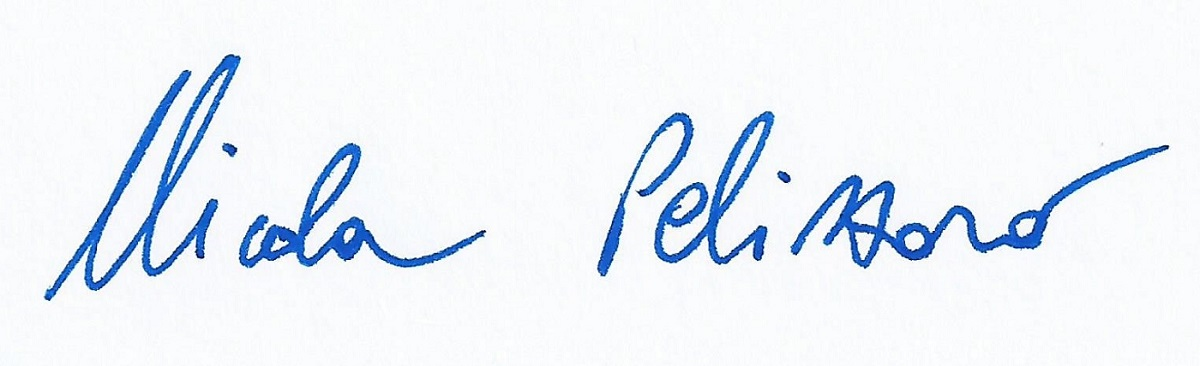 Nicola Pelissero